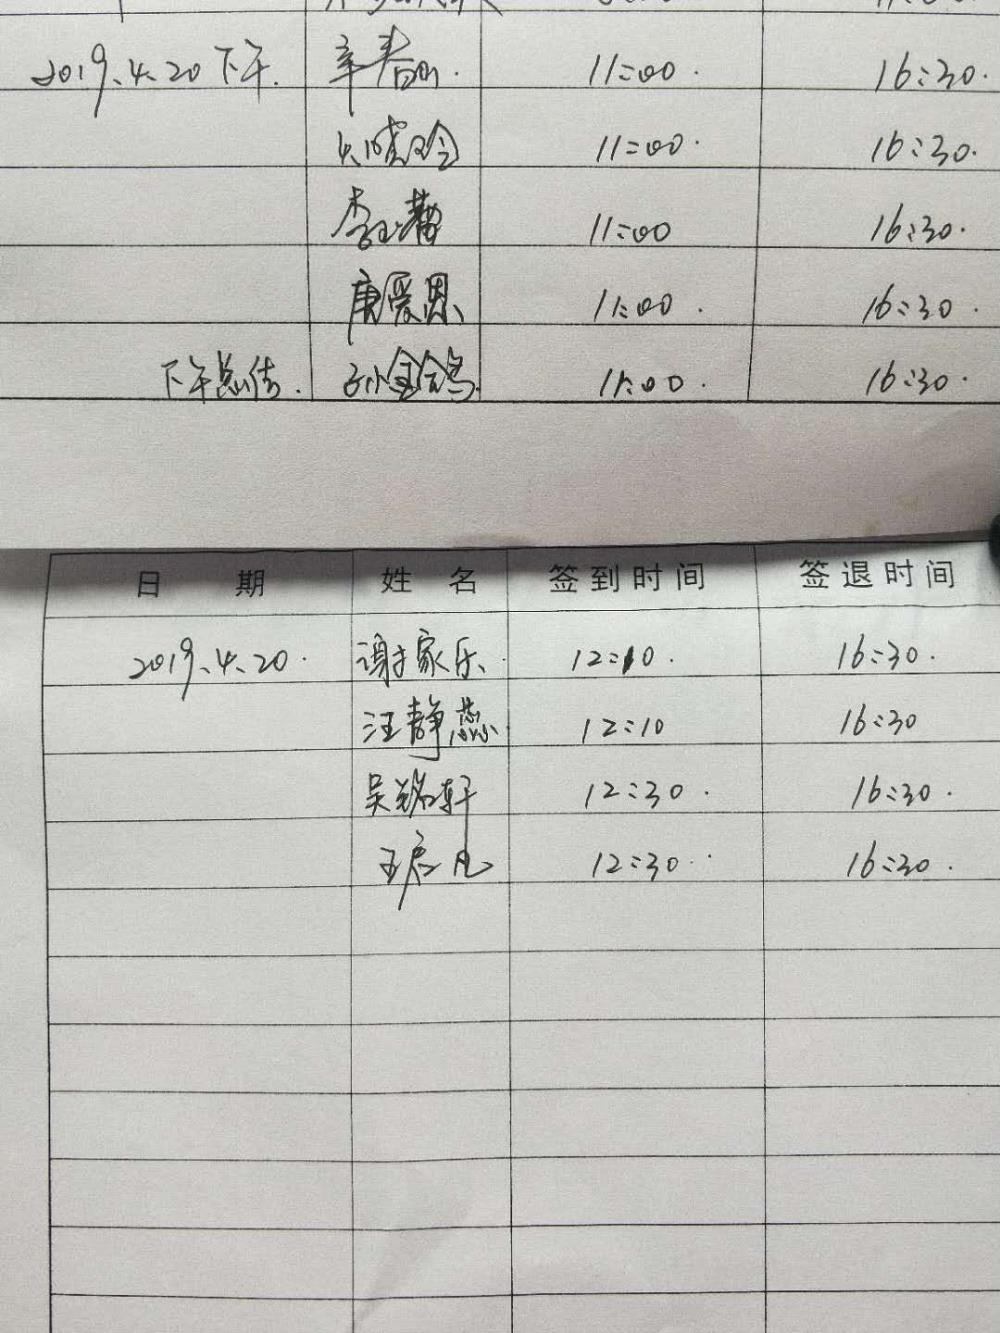 2019.4.20 下午. 辛春雨. 11:00. 16:30.
11:00. 16:30.
李 11:00 16:30.
庚爱恩 11:00. 16:30.
下午总结. 孙 11:00. 16:30.
日 期 姓 名 签到时间 签退时间
2019.4.20. 谢家乐. 12:10. 16:30.
汪静蕊. 12:10 16:30
吴铭轩 12:30. 16:30.
王启凡 12:30. 16:30.